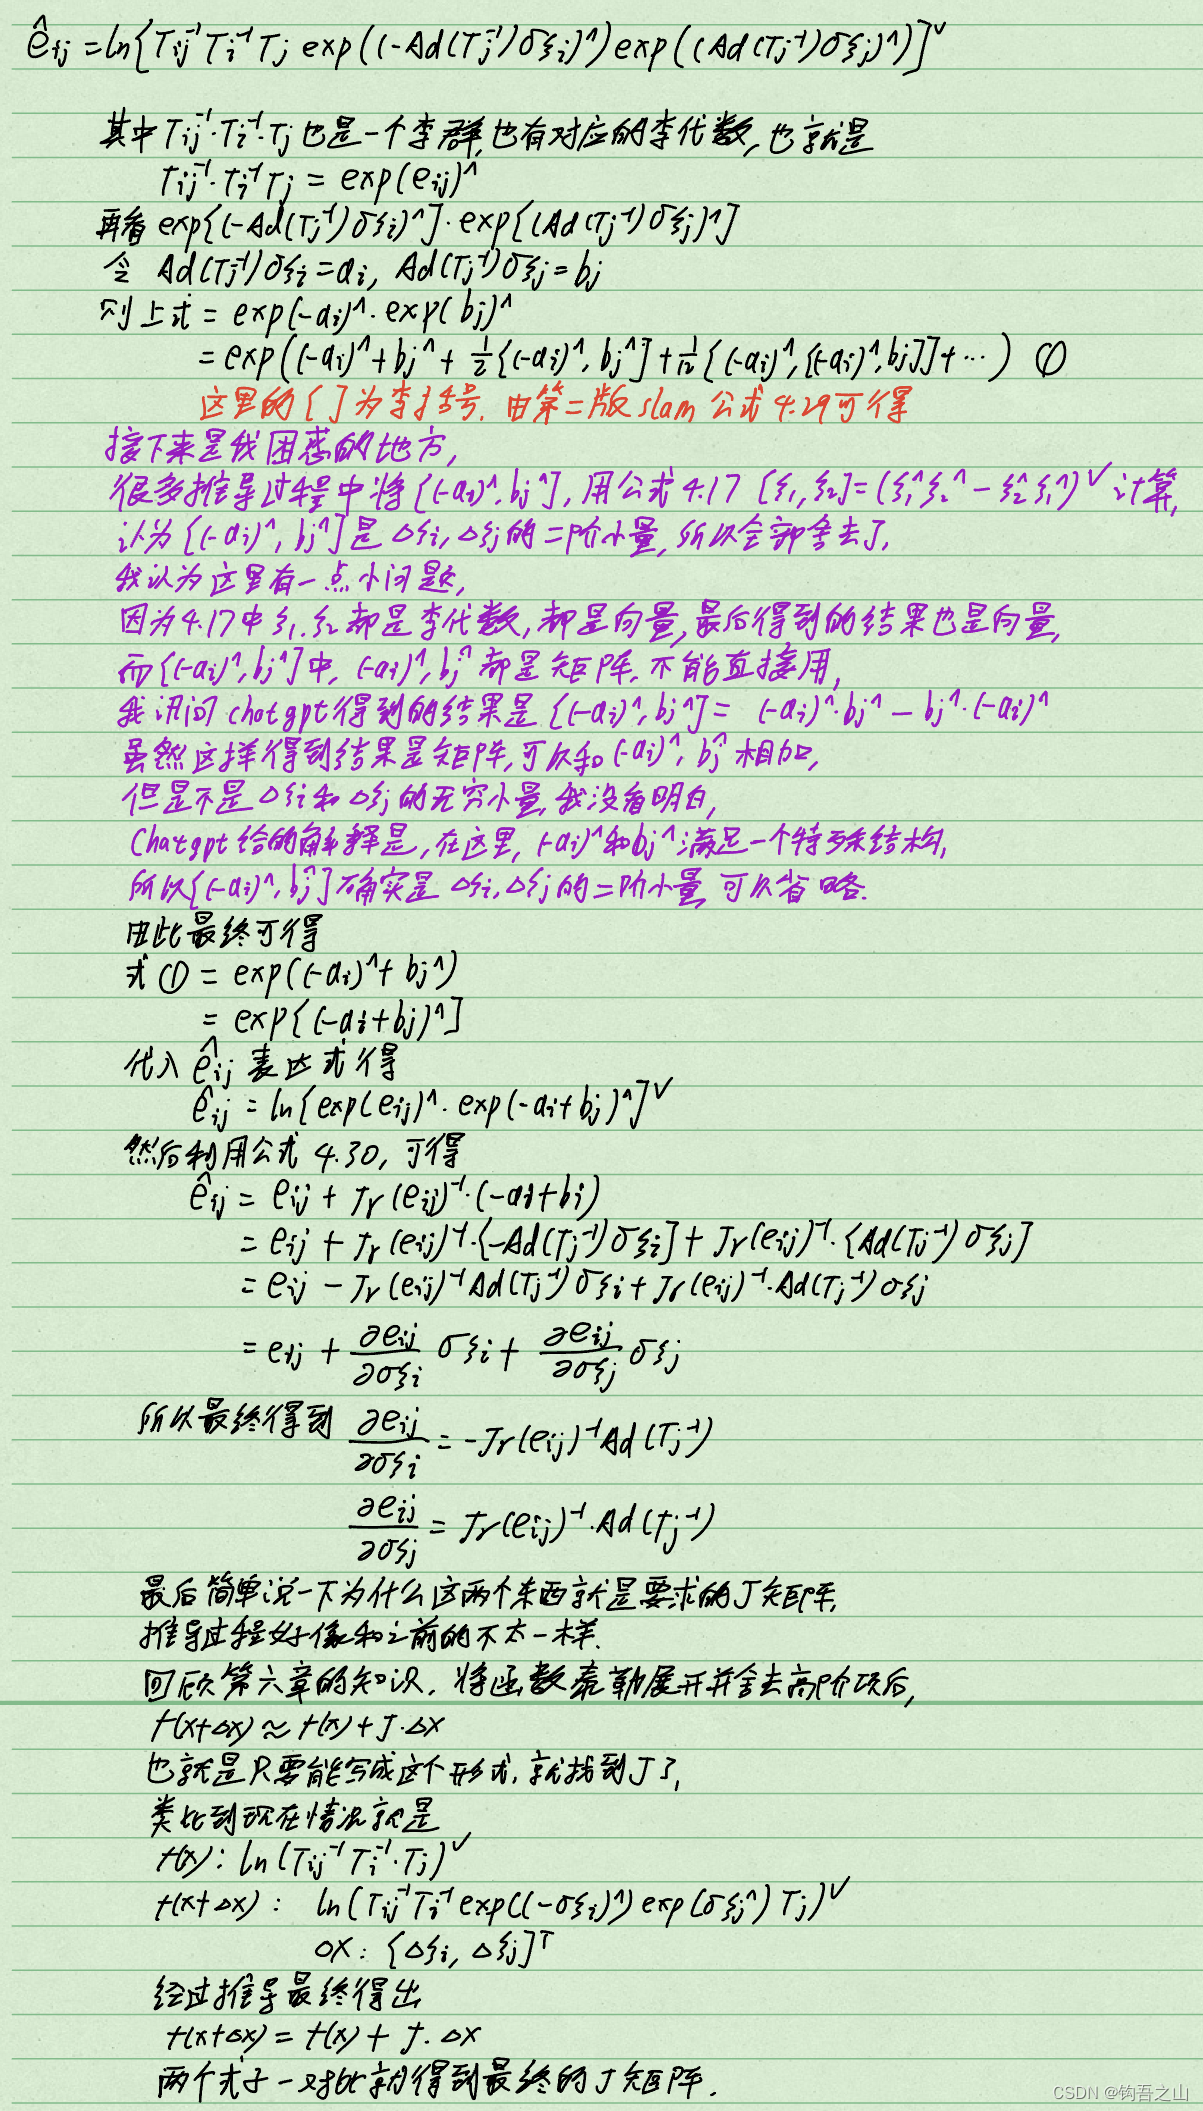 ê_ij = ln{T_ij⁻¹ T_i⁻¹ T_j exp((-Ad(T_j⁻¹)δξ_i)^) exp((Ad(T_j⁻¹)δξ_j)^)]^∨
其中 T_ij⁻¹·T_i⁻¹·T_j 也是一个李群,也有对应的李代数,也就是
T_ij⁻¹·T_i⁻¹T_j = exp(e_ij)^
再看 exp{(-Ad(T_j⁻¹)δξ_i)^]·exp{(Ad(T_j⁻¹)δξ_j)^]
令 Ad(T_j⁻¹)δξ_i=a_i, Ad(T_j⁻¹)δξ_j=b_j
则上式 = exp(-a_i)^·exp(b_j)^
= exp((-a_i)^+b_j^ + 1/2{(-a_i)^, b_j^]+1/12{(-a_i)^,[(-a_i)^,b_j]]+…) ①
这里的[]为李括号.由第二版slam公式4.29可得
接下来是我困惑的地方,
很多推导过程中将[(-a_i)^,b_j^],用公式4.17 [ξ₁,ξ₂]=(ξ₁^ξ₂^-ξ₂^ξ₁^)^∨计算,
认为[(-a_i)^,b_j^]是Δξ_i,Δξ_j的二阶小量,所以全部舍去了,
我认为这里有一点小问题,
因为4.17中ξ₁.ξ₂都是李代数,都是向量,最后得到的结果也是向量,
而[(-a_i)^,b_j^]中,(-a_i)^,b_j^都是矩阵.不能直接用,
我询问chatgpt得到的结果是[(-a_i)^,b_j^]= (-a_i)^·b_j^-b_j^·(-a_i)^
虽然这样得到结果是矩阵,可以和(-a_i)^,b_j^相加,
但是不是Δξ_i和Δξ_j的无穷小量,我没看明白,
Chatgpt给的解释是,在这里,(-a_i)^和b_j^满足一个特殊结构,
所以[(-a_i)^,b_j^]确实是Δξ_i,Δξ_j的二阶小量,可以省略.
由此最终可得
式① = exp((-a_i)^+b_j^)
= exp{(-a_i+b_j)^]
代入ê_ij表达式得
ê_ij = ln{exp(e_ij)^·exp(-a_i+b_j)^]^∨
然后利用公式4.30,可得
ê_ij = e_ij + Jr(e_ij)⁻¹·(-a_i+b_i)
= e_ij + Jr(e_ij)⁻¹·{-Ad(T_j⁻¹)δξ_i]+Jr(e_ij)⁻¹·{Ad(T_j⁻¹)δξ_j]
= e_ij - Jr(e_ij)⁻¹Ad(T_j⁻¹)δξ_i+Jr(e_ij)⁻¹·Ad(T_j⁻¹)δξ_j
= e_ij + ∂e_ij/∂δξ_i δξ_i + ∂e_ij/∂δξ_j δξ_j
所以最终得到 ∂e_ij/∂δξ_i = -Jr(e_ij)⁻¹Ad(T_j⁻¹)
∂e_ij/∂δξ_j = Jr(e_ij)⁻¹·Ad(T_j⁻¹)
最后简单说一下为什么这两个东西就是要求的J矩阵,
推导过程好像和之前的不太一样.
回顾第六章的知识.将函数泰勒展开并舍去高阶项后,
f(x+Δx)≈f(x)+J·Δx
也就是只要能写成这个形式.就找到J了,
类比到现在情况就是
f(x): ln(T_ij⁻¹T_i⁻¹·T_j)^∨
f(x+Δx): ln(T_ij⁻¹T_i⁻¹exp((-δξ_i)^)exp(δξ_j^)T_j)^∨
ΔX: {Δξ_i, Δξ_j]ᵀ
经过推导最终得出
f(x+Δx)=f(x)+J.Δx
两个式子一对比就得到最终的J矩阵.
CSDN @钩吾之山